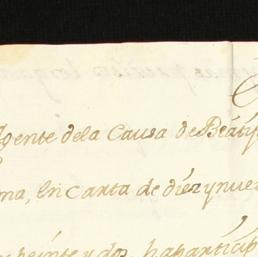 gente dela Causa de Beati
ma, en carta de diez y nueve
veinte y dos, ha partici